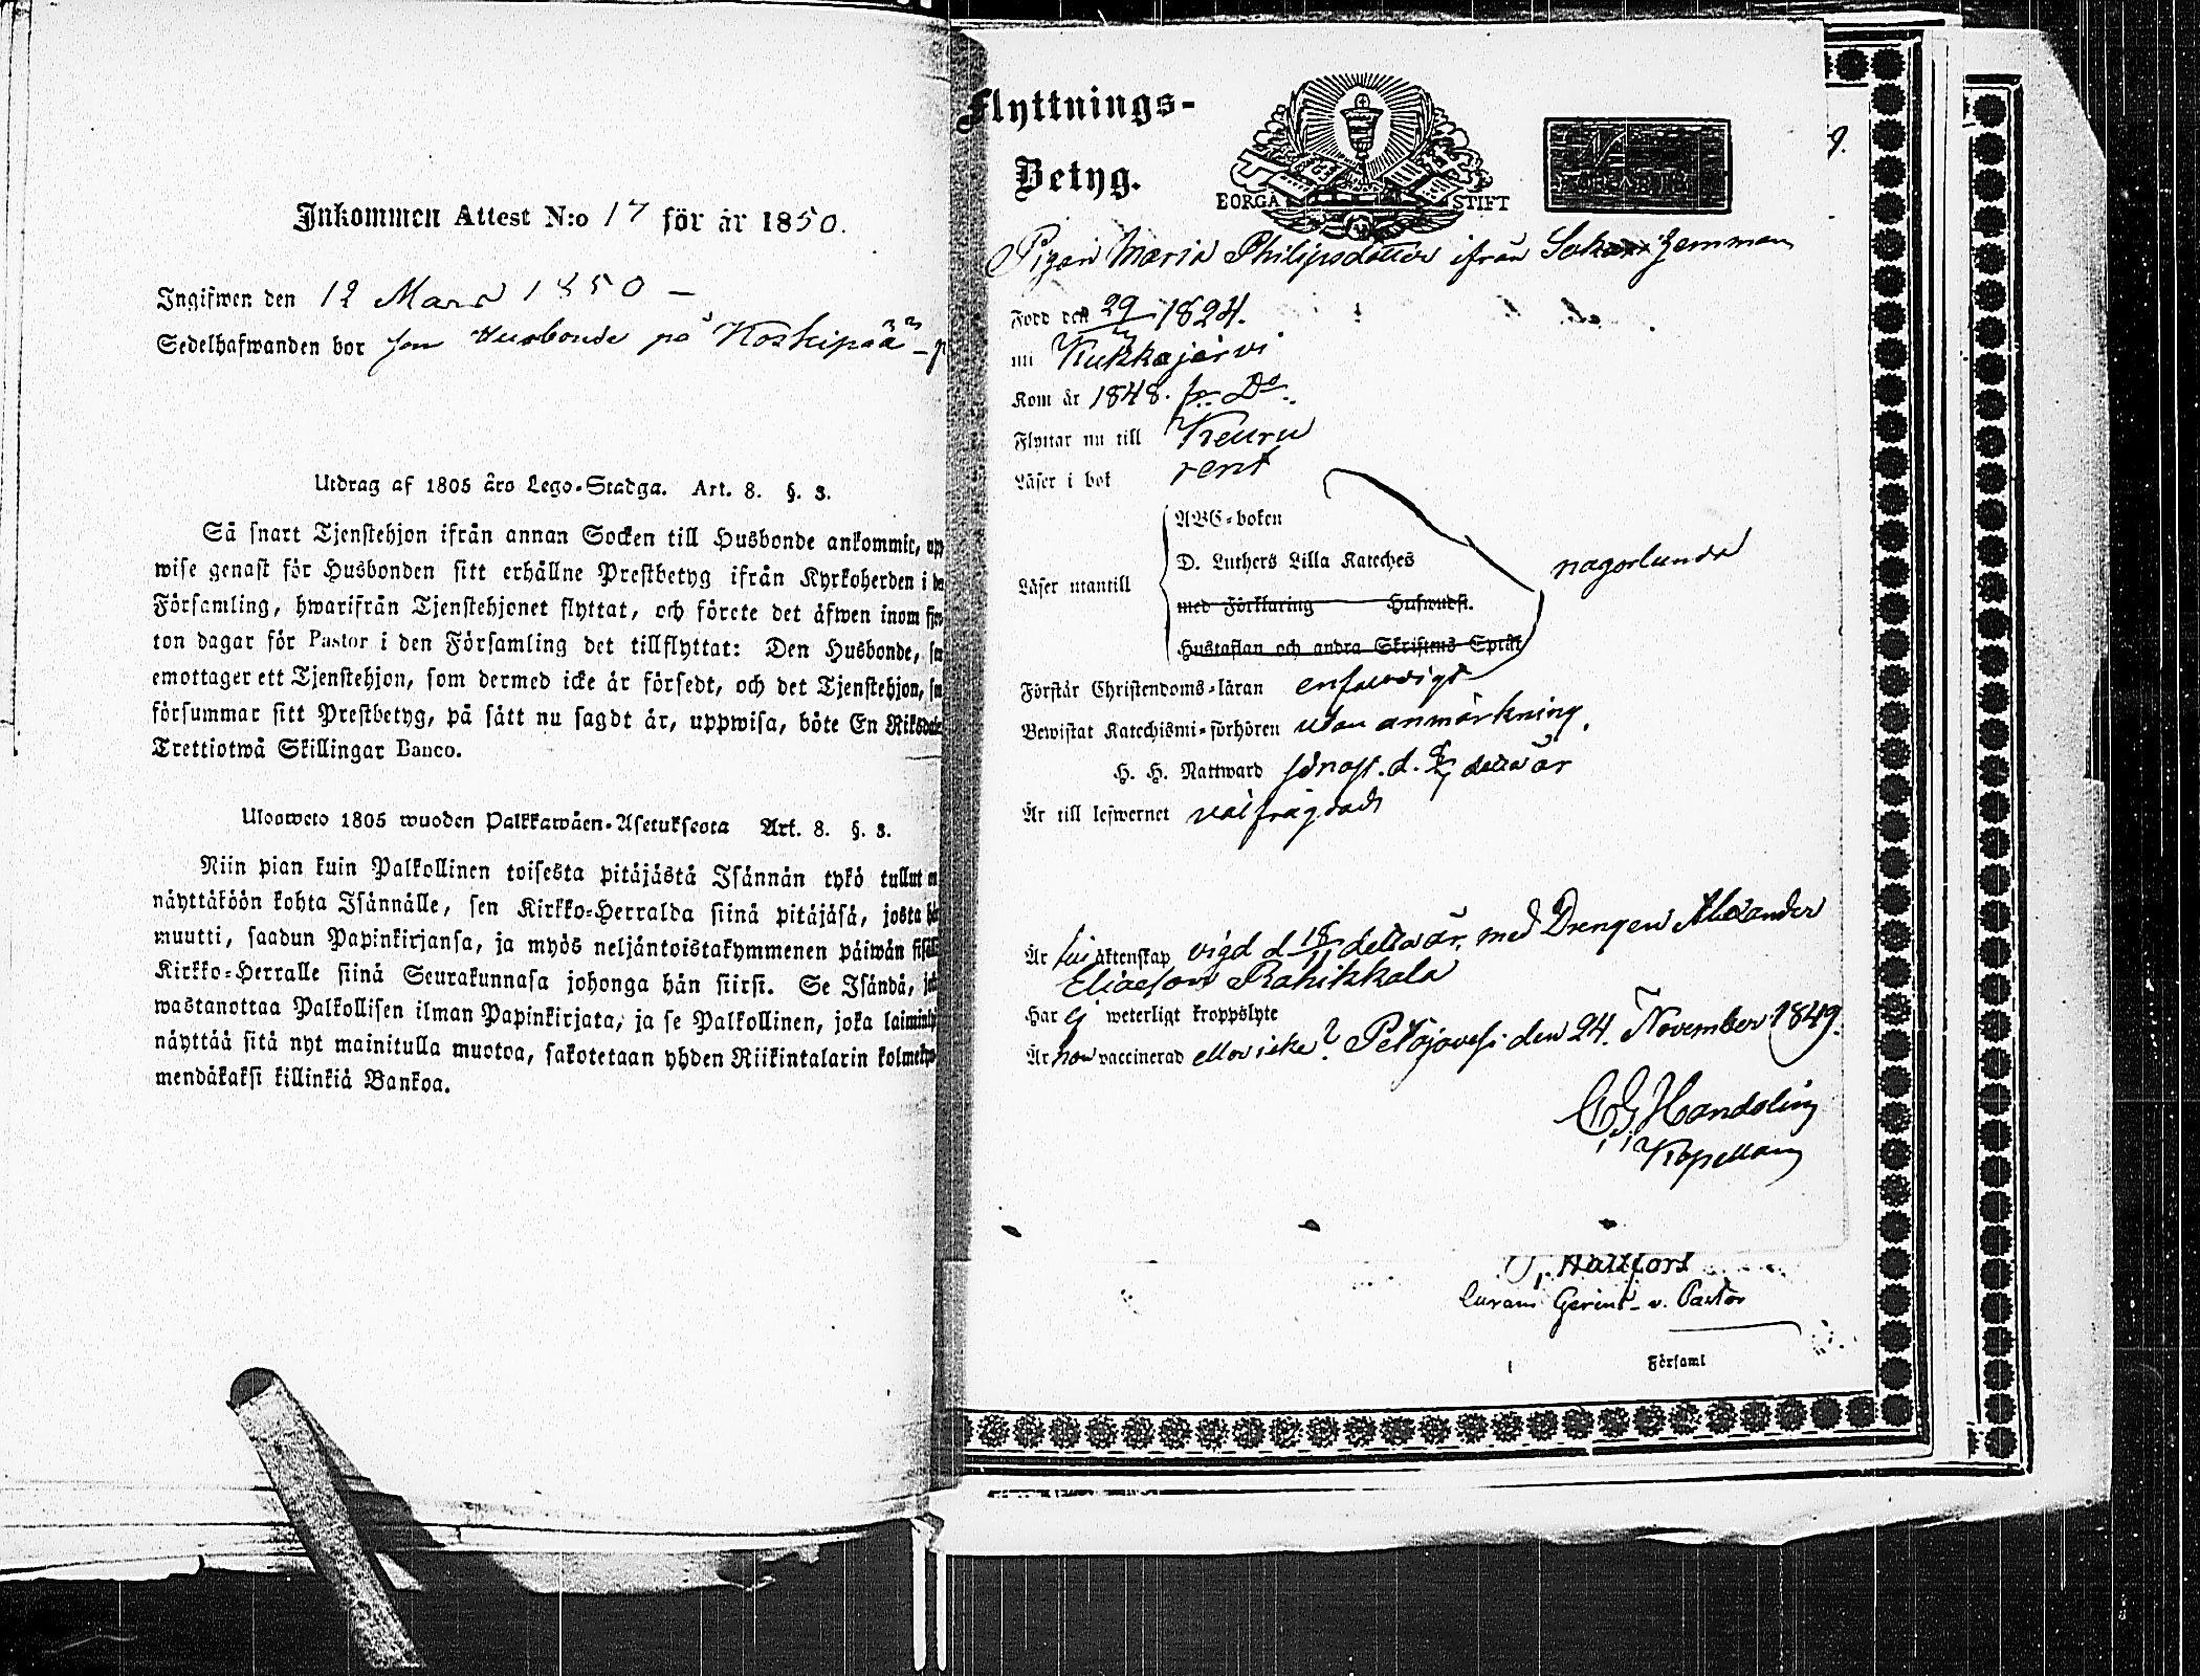 Inkommen Attest N:o 17 för år 1850.
Ingifwen den 12 Mars 1850 –
Sedelhafwanden bor som Husbonde på Koskipää –
Utdrag af 1805 års Lego-Stadga. Art. 8. §. 3.
Så snart Tjenstehjon ifrån annan Socken till Husbonde ankommit, upp
wise genast för Husbonden sitt erhållne Prestbetyg ifrån Kyrkoherden i
Församling, hwarifrån Tjenstehjonet flyttat, och förete det äfwen inom fjor
ton dagar för Pastor i den Församling det tillflyttat: Den Husbonde,
emottager ett Tjenstehjon, som dermed icke är försedt, och det Tjenstehjon,
försummar sitt Prestbetyg, på sätt nu sagdt är, uppwisa, böte En Riksdaler
Trettiotwå Skillingar Banco.
Ulosweto 1805 wuoden Palkkawäen-Asetuksesta Art. 8. §. 3.
Niin pian kuin Palkollinen toisesta pitäjästä Isännän tykö tullut
näyttäköön kohta Isännälle, sen Kirkko-Herralda siinä pitäjäsä, josta hän
muutti, saadun Papinkirjansa, ja myös neljäntoistakymmenen päiwän sisällä
Kirkko-Herralle siinä Seurakunnasa johonga hän siirsi. Se Isändä,
wastanottaa Palkollisen ilman Papinkirjata, ja se Palkollinen, joka laiminlyö
näyttää sitä nyt mainitulla muotoa, sakotetaan yhden Riikintalarin kolmekym
mendäkaksi killinkiä Bankoa.
Flyttnings-
Betyg.
BORGÅ STIFT
Pigan Maria Philipsdotter ifrån
Född den 29/3 1824.
uti Kukkajärvi
Kom år 1848. fr. Do.
Flyttar nu till Keuru
Läser i bok rent
Läser utantill
ABC-boken
D. Luthers Lilla Kateches
med Förklaring Hufwudst.
Hustaflan och andra Skriftens Språk
någorlunda
Förstår Christendoms-läran enfaldigt
Bewistat Katechismi-förhören utan anmärkning.
H. H. Nattward d. detta år
Är till lefwernet välfrägdad
Är äktenskap vigd d 18/11 detta år, med Drengen Alexander
Eliasson Rahikkala
Har ej weterligt kroppslyte
Är hon vaccinerad eller icke? Petäjävesi den 24. November 1849.
Handolin
Kapellan
Hallfors
Curam Gerens v. Pastor
Församl